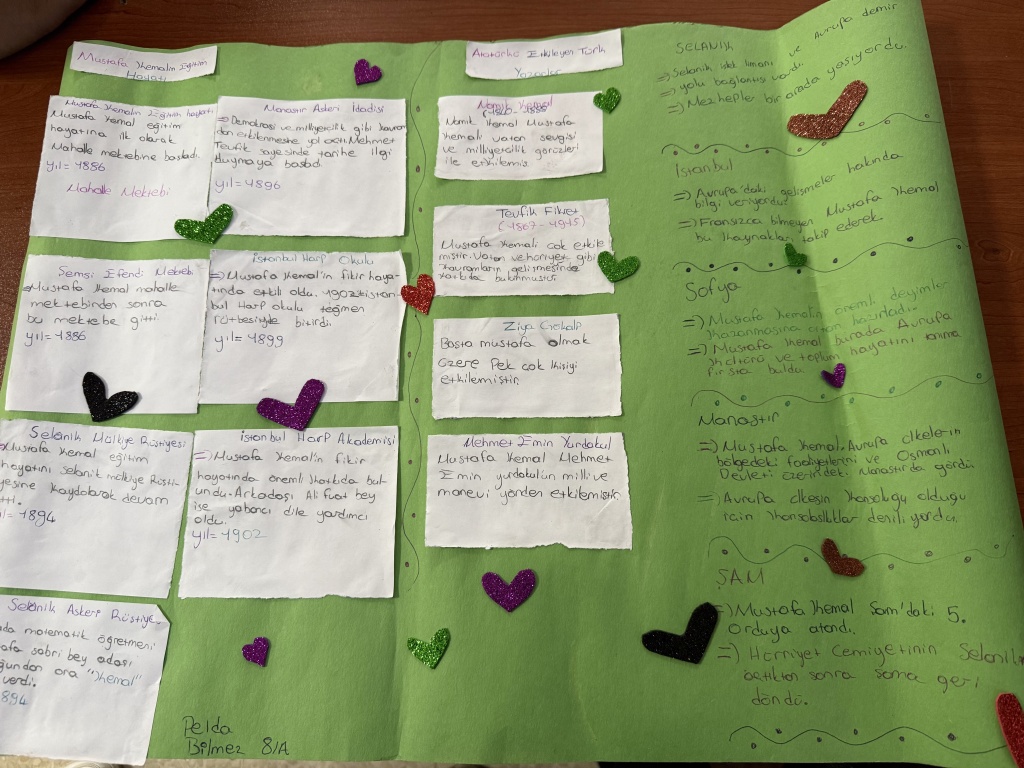 Mustafa Kemalin Eğitim
Hayatı
Mustafa Kemalin Eğitim hayatı
Mustafa Kemal eğitim
hayatına ilk olarak
Mahalle mektebine başladı.
yıl = 1886
Mahalle Mektebi
Şemsi Efendi Mektebi
Mustafa Kemal mahalle
mektebinden sonra
bu mektebe gitti.
yıl = 1886
Selanik Mülkiye Rüştiyesi
Mustafa Kemal eğitim
hayatını selanik mülkiye Rüşti-
yesine kaydolarak devam
etti.
yıl = 1894
Selanik Askeri Rüştiye
matematik öğretmeni
sabri bey adaşı
ona "Kemal"
verdi.
1894
Manastır Askeri İdadisi
=> Demokrasi ve milliyetcilik gibi kavram
dan etkilenmesine yol açtı. Mehmet
Tevfik sayesinde tarihe ilgi
duymaya başladı
yıl = 1896
İstanbul Harp Okulu
=> Mustafa Kemal'in fikir haya-
tında etkili oldu. 1902 istan-
bul Harp okulu teğmen
rütbesiyle bitirdi.
yıl = 1899
İstanbul Harp Akademisi
=> Mustafa Kemal'in fikir
hayatında önemli katkıda bul-
undu. Arkadaşı Ali fuat bey
ise yabancı dile yardımcı
oldu.
yıl = 1902
Pelda
Bilmez 8/A
Atatürkü Etkileyen Türk
Yazarlar
Namık Kemal
Namık Kemal Mustafa
Kemali vatan sevgisi
ve milliyetcilik görüşleri
ile etkilemiş.
Tevfik Fikret
(1867 - 1915)
Mustafa Kemali çok etkile
miştir. Vatan ve hürriyet gibi
kavramların gelişmesinde
katkıda bulunmuştur
Ziya Gökalp
Başta mustafa olmak
üzere Pek çok kişiyi
etkilemiştir.
Mehmet Emin Yurdakul
Mustafa Kemal Mehmet
Emin yurdakulun milli ve
manevi yönden etkilemiştir
SELANİK
=> Selanik limanı ve Avrupa demir
yolu bağlantısı vardı.
=> Mezhepler bir arada yaşıyordu.
İstanbul
=> Avrupa'daki gelişmeler hakkında
bilgi veriyordu
=> Fransızca bilmeyen Mustafa Kemal
bu kaynakları takip ederek.
Sofya
=> Mustafa Kemalin önemli deyimler
kazanmasına hazırladı.
=> Mustafa Kemal burada Avrupa
kültürü ve toplum hayatını tanıma
fırsatı buldu
Manastır
=> Mustafa Kemal. Avrupa ülkelerin
bölgedeki faaliyetlerini ve Osmanlı
Devleti üzerindeki Manastırda gördü
=> Avrupa ülkesin konsoluğu olduğu
için konsolosluklar deniliyordu.
ŞAM
=> Mustafa Kemal Şam'daki 5.
Orduya atandı.
=> Hürriyet Cemiyetinin Selanik
açtıktan sonra Şama geri
döndü.